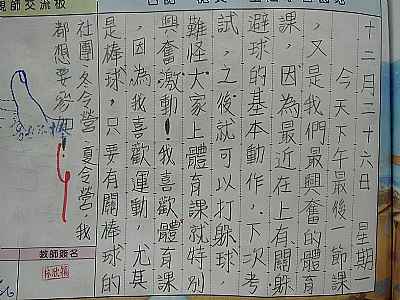 十二月二十六日 星期一
今天下午最後一節課
，又是我們最興奮的體育
課，因為最近在上有關躲
避球的基本動作，下次考
試，之後就可以打躲球，
難怪大家上體育課就特別
興奮激動！我喜歡體育課
，因為我喜歡運動，尤其
是棒球，只要有關棒球的
社團、冬令營、夏令營，我
都想要參加！
師交流板
教師簽名